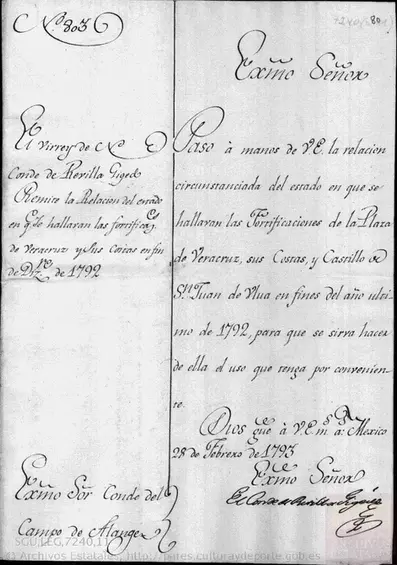 N.º 803
80
Exmo Señor
El Virrey de N. E.
Conde de Revilla Gigedo
Remite la Relacion del estado
en qe. se hallaran las fortificaces.
de Veracruz y sus Costas en fin
de Dizre. de 1792
Paso à manos de V.E. la relacion
circunstanciada del estado en que se
hallaran las Fortificaciones de la Plaza
de Veracruz, sus Costas, y Castillo de
Sn. Juan de Ulua en fines del año ulti-
mo de 1792, para que se sirva hacer
de ella el uso que tenga por convenien-
te.
Dios gue. à V.E. ms. as. Mexico
28 de Febrero de 1793
Exmo. Señor
El Conde de Revilla Gigedo
Exmo Sor. Conde del
Campo de Alange
SGU,LEG,7240,11
© Archivos Estatales, http://pares.culturaydeporte.gob.es